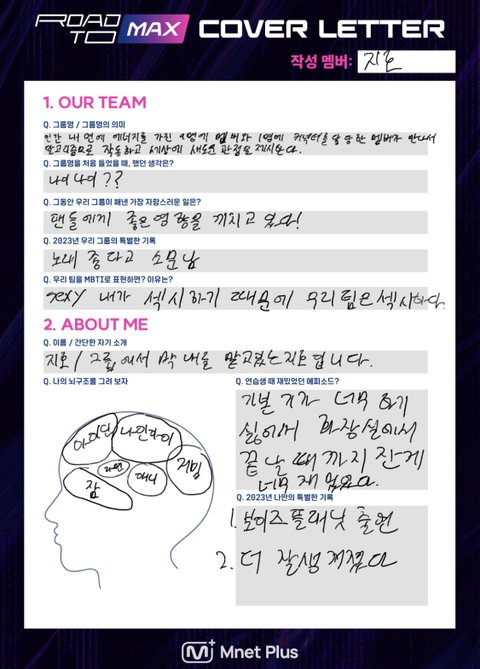 ROAD TO MAX COVER LETTER
작성 멤버: 지호
1. OUR TEAM
Q. 그룹명 / 그룹명의 의미
인간 내면에 에너지를 가진 9명에 멤버와 1명에 커넥터를 담당한 멤버가 만나서
알고리즘으로 작동하고 세상에 새로운 관점을 제시한다.
Q. 그룹명을 처음 들었을 때, 했던 생각은?
나이나이??
Q. 그동안 우리 그룹이 해낸 가장 자랑스러운 일은?
팬들에게 좋은 영향을 끼치고 있다!
Q. 2023년 우리 그룹의 특별한 기록
노래 좋다고 소문남
Q. 우리 팀을 MBTI로 표현하면? 이유는?
sexy 내가 섹시하기 때문에 우리팀은 섹시하다.
2. ABOUT ME
Q. 이름 / 간단한 자기 소개
지호 / 그룹에서 막내를 맡고있는 지호 입니다.
Q. 나의 뇌구조를 그려 보자
아이딘
나인아이
게임
라면
잠
Q. 연습생 때 재밌었던 에피소드?
기본기가 너무 하기
싫어서 화장실에서
끝날때까지 잔게
너무 재밌었다.
Q. 2023년 나만의 특별한 기록
1. 보이즈플래닛 출연
2. 더 잘생겨졌다
M+ Mnet Plus